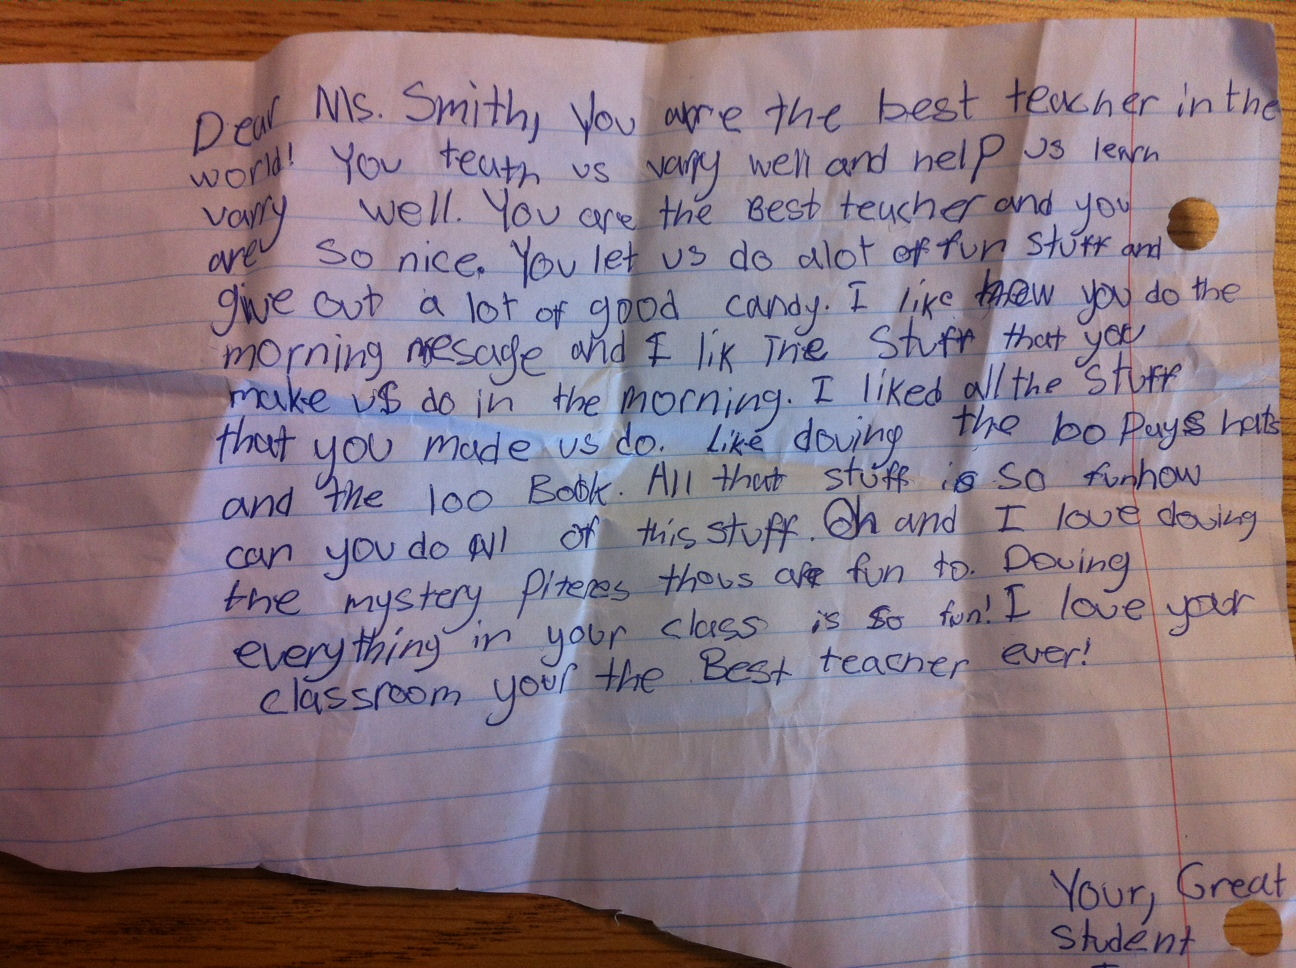 Dear Ms. Smith, You are the best teacher in the
world! You teath us varry well and help us learn
varry well. You are the Best teacher and you
are so nice. You let us do alot of fun stuff and
give out a lot of good candy. I like how you do the
morning mesage and I lik the stuff that you
make us do in the morning. I liked all the stuff
that you made us do. Like douing the 100 Days hats
and the 100 Book. All that stuff is so fun how
can you do all of this stuff. Oh and I love douing
the mystery piteres thous are fun to. Douing
everything in your class is so fun! I love your
classroom your the Best teacher ever!
Your, Great
Student